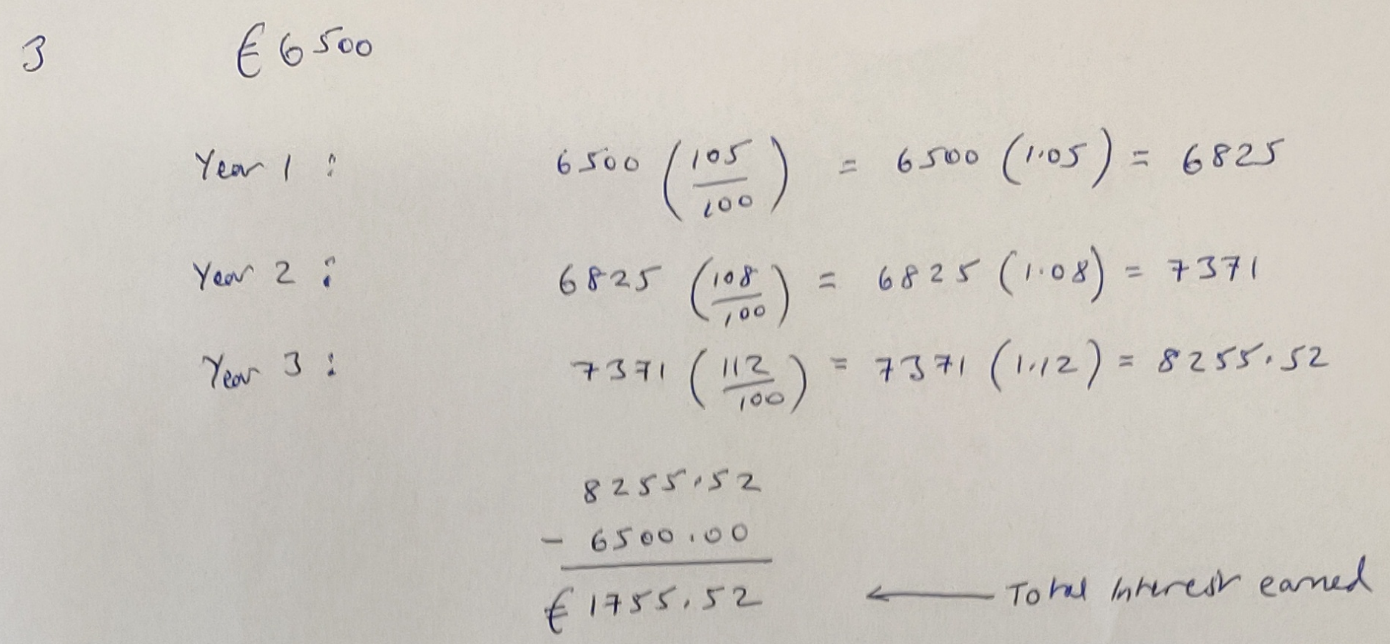 3 € 6500
Year 1 : 6500 (105/100) = 6500 (1.05) = 6825
Year 2 : 6825 (108/100) = 6825 (1.08) = 7371
Year 3 : 7371 (112/100) = 7371 (1.12) = 8255.52
8255.52
- 6500.00
€ 1755.52 ← Total Interest earned